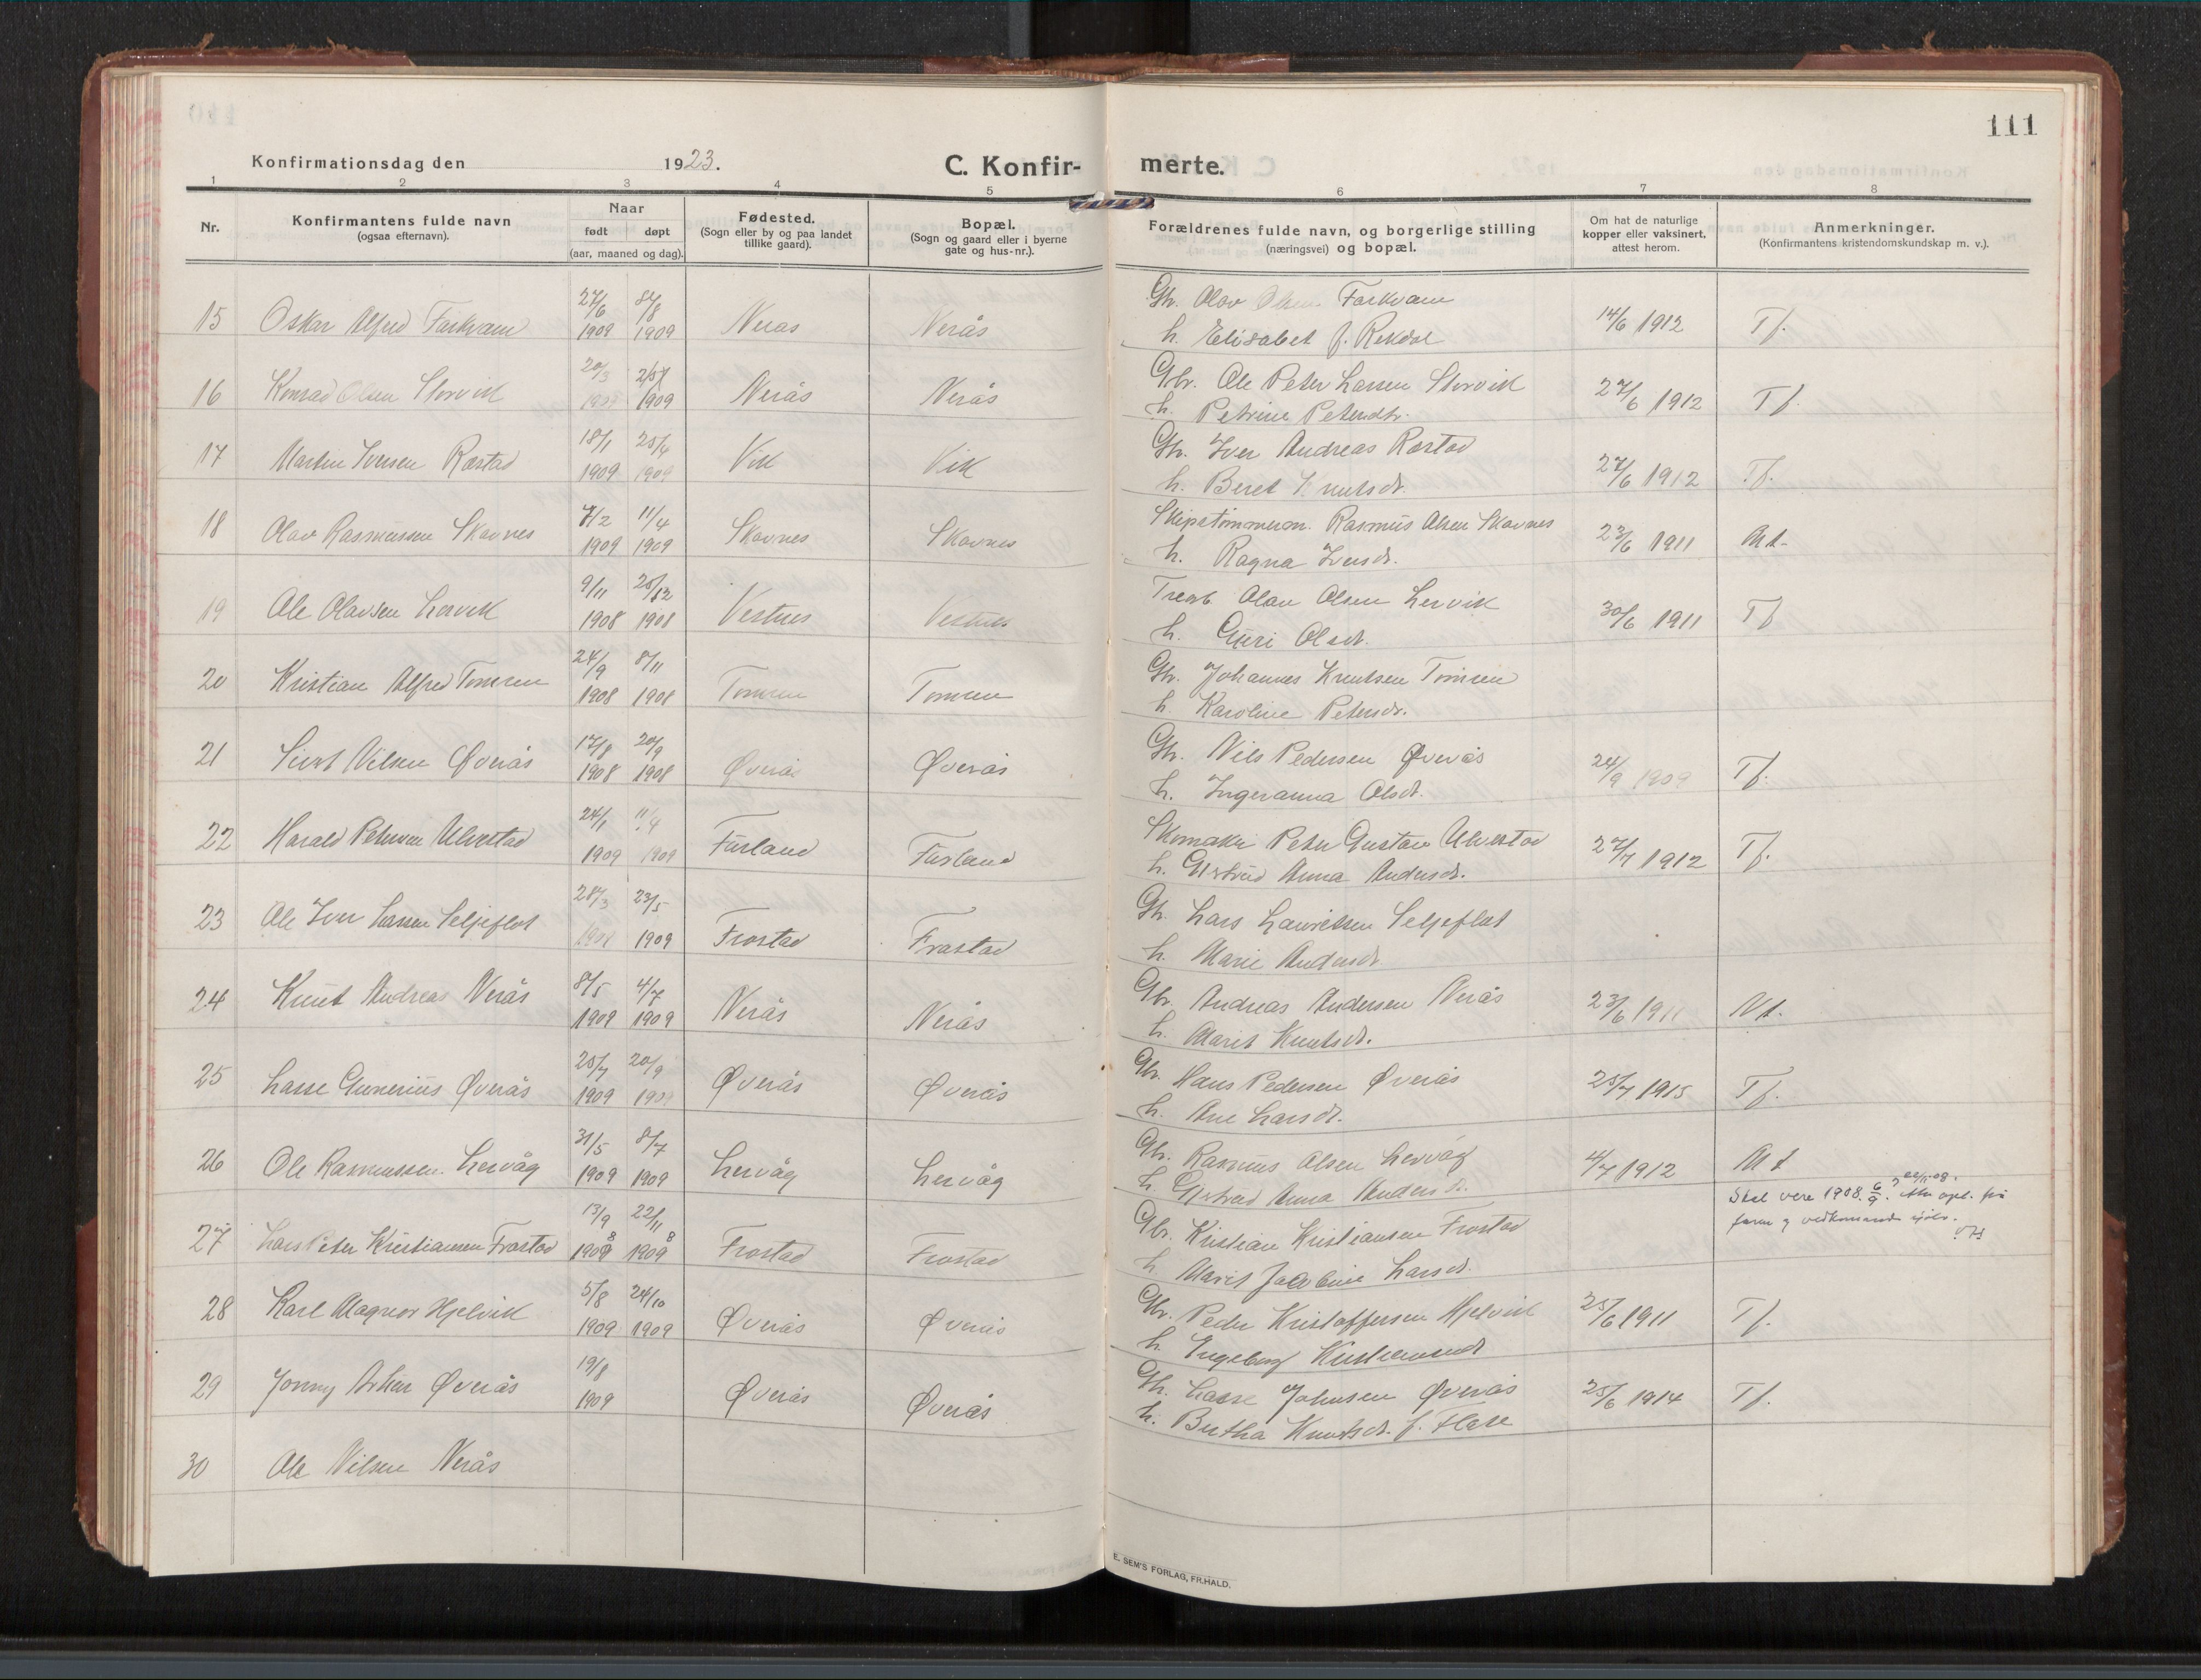 111
Konfirmationsdag den 1923. C. Konfirmerte.
1 2 3 4 5 6 7 8
Nr. Konfirmantens fulde navn (ogsaa efternavn). Naar født døpt (aar, maaned og dag). Fødested. (Sogn eller by og paa landet tillike gaard). Bopæl. (Sogn og gaard eller i byerne gate og hus-nr.). Forældrenes fulde navn, og borgerlige stilling (næringsvei) og bopæl. Om hat de naturlige kopper eller vaksinert, attest herom. Anmerkninger. (Konfirmantens kristendomskundskap m. v.).
15 Oskar Alfred Farkvam 27/6 1909 8/8 1909 Nerås Nerås Gbr. Olav Olsen Farkvam 14/6 1912 Tf.
h. Elisabet f. Rekdal
16 Konrad Olsen Storvik 20/3 1909 1909 Nerås Nerås Gbr. Ole Peter Larsen Storvik 27/6 1912 Tf.
h. Petrine Petersdtr.
17 Martin Iversen Røstad 18/1 1909 25/4 1909 Vik Vik Gbr. Iver Andreas Røstad 27/6 1912 Tf.
h. Beret Knutsdt.
18 Olav Rasmussen Skavnes 7/2 1909 11/4 1909 Skavnes Skavnes Skipstømmerm. Rasmus Olsen Skavnes 23/6 1911 Mt.
h. Ragna Iversdt.
19 Ole Olavsen Lervik 9/11 1908 25/12 1908 Vestnes Vestnes Olav Olsen Lervik 30/6 1911 Tf
h. Guri Olsdt.
20 Kristian Alfred Tomren 24/9 1908 8/11 1908 Tomren Tomren Gbr. Johannes Knutsen Tomren
h. Karoline Petersdt.
21 Sivert Nilsen Øverås 17/8 1908 20/9 1908 Øverås Øverås Gbr. Nils Pedersen Øverås 24/9 1909 Tf.
h. Ingeranna Olsdt.
22 Harald Petersen Ulvestad 24/1 1909 11/4 1909 Furland Furland Skomaker Peter Gustav Ulvestad 27/7 1912 Tf.
h. Gjertrud Anna Andersdt.
23 Ole Iver Larsen Seljeflot 28/3 1909 23/5 1909 Frostad Frostad Gbr. Lars Lauritsen Seljeflot
h. Marie Andersdt
24 Knut Andreas Nerås 8/5 1909 4/7 1909 Nerås Nerås Gbr. Andreas Andersen Nerås 23/6 1911 Mt.
h. Marit Knutsdt.
25 Lasse Gunerius Øverås 25/7 1909 20/9 1909 Øverås Øverås Gbr. Hans Pedersen Øverås 25/7 1915 Tf.
h. Ane Larsdt.
26 Ole Rasmussen Lervåg 31/5 1909 8/7 1909 Lervåg Lervåg Gbr. Rasmus Olsen Lervåg 4/7 1912 Mt
h. Gjertrud Anna Andersdt.
27 Lars Peter Kristiansen Frostad 13/9 1908 22/11 1908 Frostad Frostad Gbr. Kristian Kristiansen Frostad Skal vere 1908. 6/9. etter opl. frå
h. Marit Jakobine Larsdt.
28 Karl Magnor Hjelvik 5/8 1909 24/10 1909 Øverås Øverås Gbr. Peder Kristoffersen Hjelvik 25/6 1911 Tf.
h. Ingeborg Kristiansdt
29 Jonny Arthur Øverås 19/8 1909 Øverås Øverås Gbr. Lasse Johnsen Øverås 25/6 1914 Tf.
h. Bertha Knutsdt. f. Flate
30 Ole Nilsen Nerås
E. SEM'S FORLAG, FR.HALD.